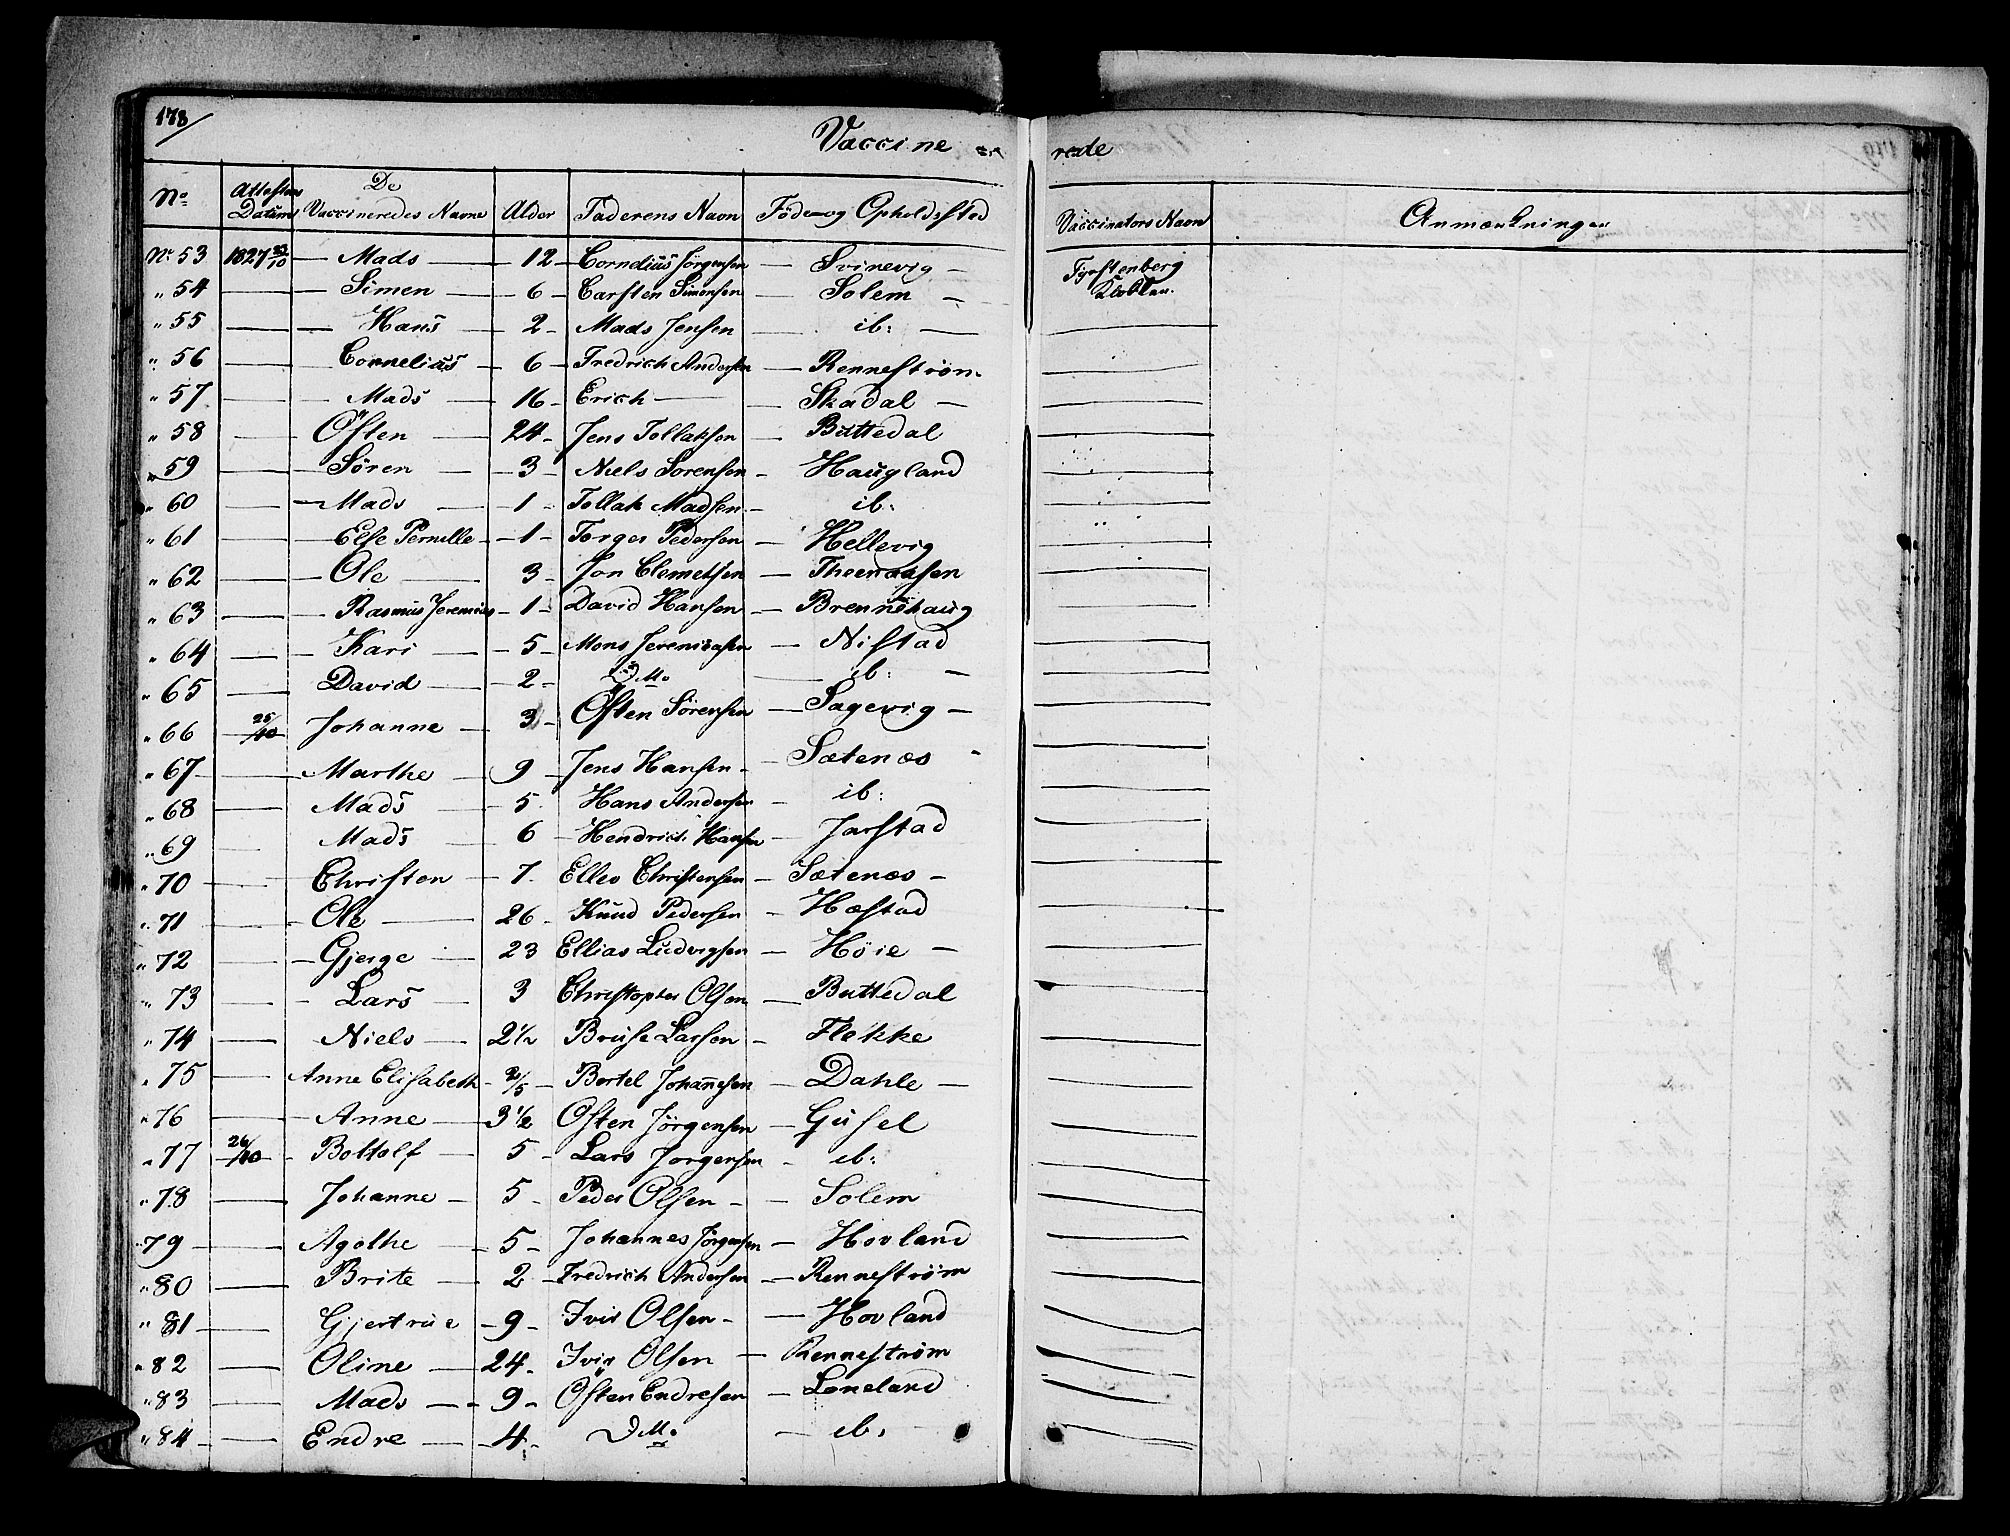 178
Vaccine rede
No Attestens Datum De Vaccineredes Navne Alder Faderens Navn Føde og Opholdssted Vaccinators Navn Anmærkninger
No 53 1827 10 — Mads — 12 — Cornelius Jörgensen — Svinevig —
" 54 — Simen — 6 — Carsten Simonsen — Solem —
" 55 — Hans — 2 — Mads Jensen — ib: —
" 56 — Cornelius — 6 — Fredrich Andersen — Rennestrøm
" 57 — Mads — 16 — Erich — Skadal —
" 58 — Östen — 24 — Jens Tollaksen — Buttedal
" 59 — Sören — 3 — Niels Sorensen — Haugland
" 60 — Mads — 1 — Tollak Madsen — ib:
" 61 — Else Pernille — 1 — Torger Pedersen — Hellevig
" 62 — Ole — 3 — Jon Clemetsen — Theenaasen
" 63 — Rasmus Jeremias — 1 — David Hansen — Brennehaug
" 64 — Kari — 5 — Mons Jeremiasen — Nistad
" 65 — David — 2 — D M. — ib: —
" 66 25/10 Johanne — 3 — Östen Sörensen — Sagevig —
" 67 — Marthe — 9 — Jens Hansen — Sætenæs
" 68 — Mads — 5 Hans Andersen — ib:
" 69 — Mads 6 — Hendrich Hansen — Jarstad
" 70 — Christen — 7 Ellev Christensen — Sætenæs —
" 71 — Ole — 26 Knud Pedersen — Hæstad
" 72 — Gjerge — 23 Ellias Ludvigsen — Høie —
" 73 — Lars 3 Christopher Olsen — Buttedal
" 74 — Niels — 2 1/2 Bruse Larsen — Flekke
" 75 — Anne Elisabeth — 2/5 — Bertel Johannesen — Dahle —
" 76 — Anne — 3 1/2 Osten Jörgensen — Gusel
" 77 26/10 — Bottolf — 5 — Lars Jorgensen — ib:
" 78 — Johanne — 5 — Peder Olsen — Solem
" 79 — Agothe — 5 — Johannes Jørgensen — Hovland
" 80 — Brite — 2 — Fredrich Andersen — Rennestrøm
" 81 — Gjertrue — 9 — Iver Olsen — Hovland
" 82 — Oline — 24 — Iver Olsen — Rennestrøm
" 83 — Mads — 9 — Östen Endresen — Loneland
" 84 — Endre — 4 — D M. — ib.